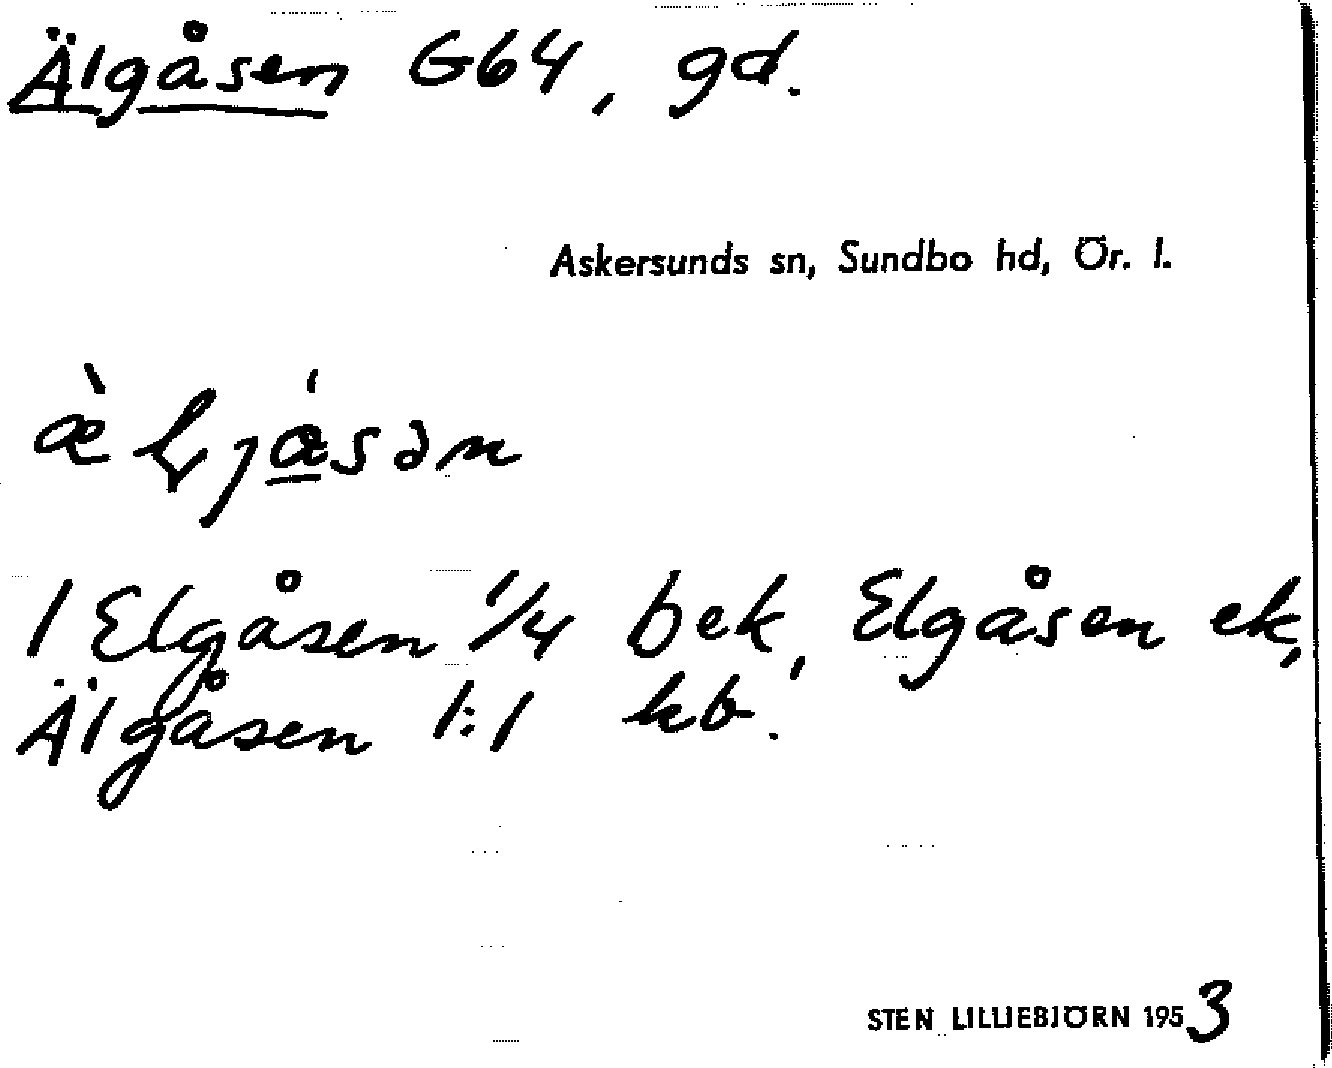 Älgåsen G64, gd.
Askersunds sn, Sundbo hd, Ör. l.
1 Elgåsen 1/4 bek, Elgåsen ek,
Älgåsen 1:1 kb.
STEN LILLIEBJÖRN 1953